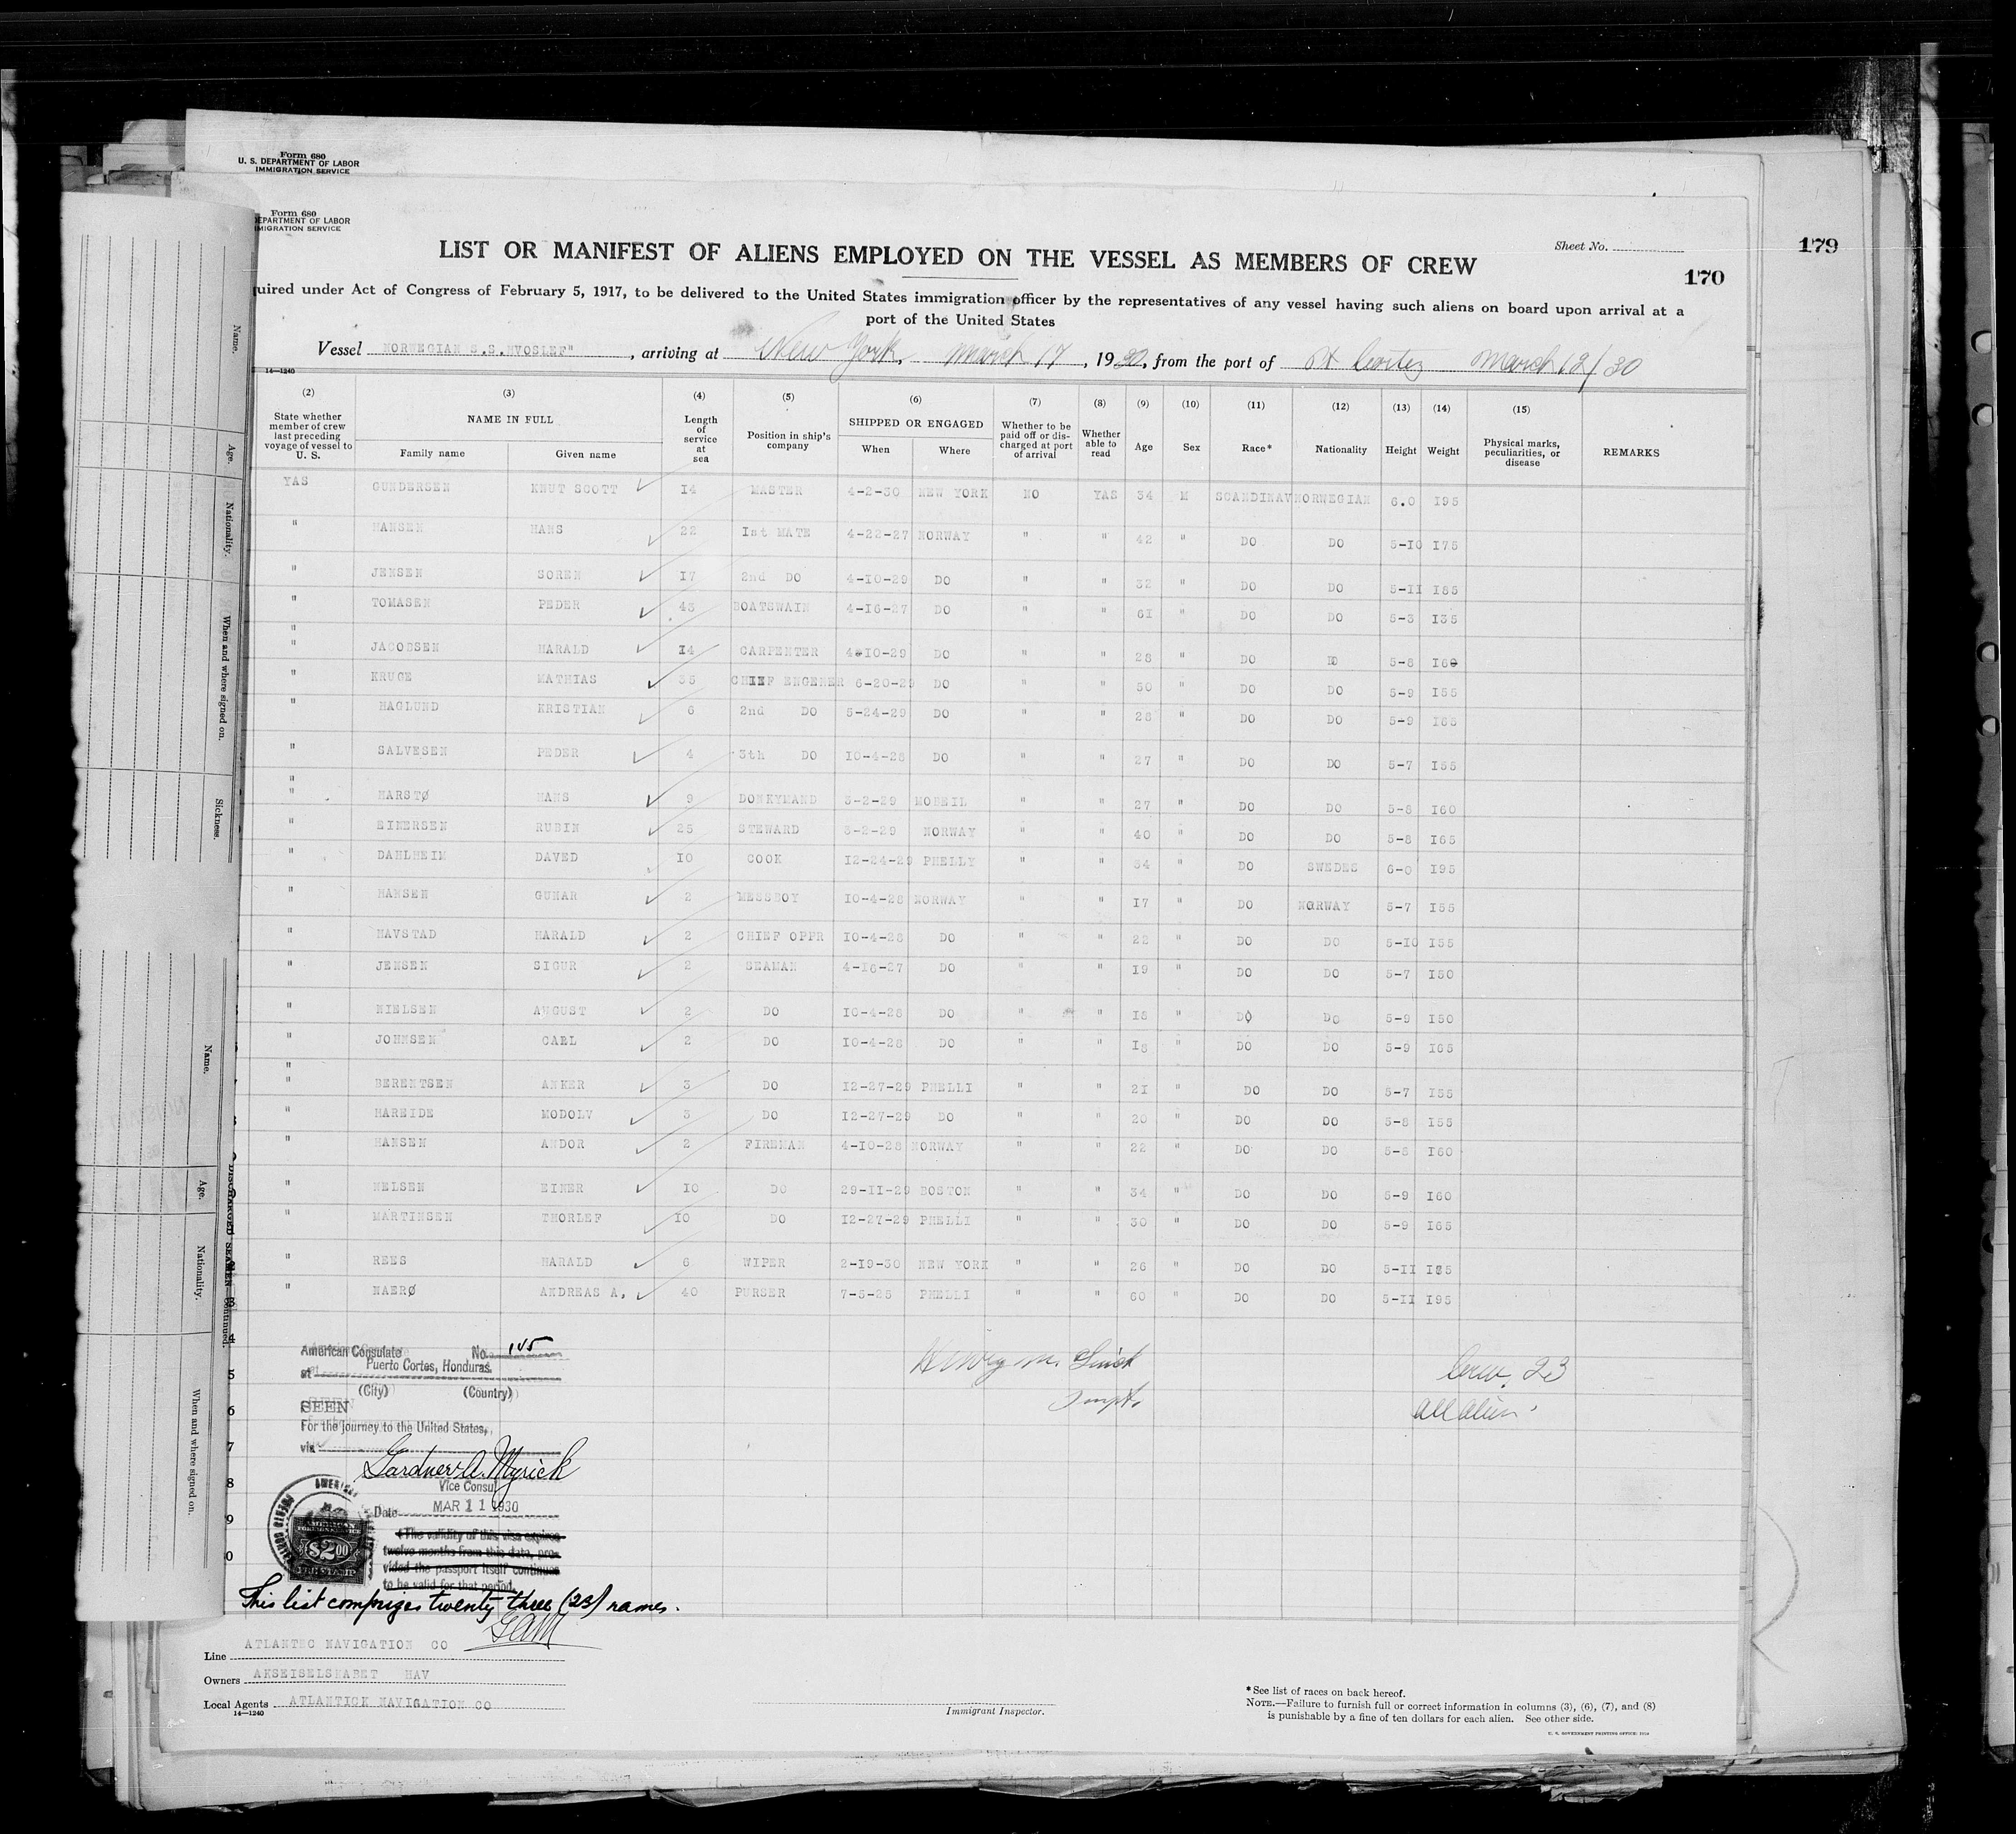 Form 680
U. S. DEPARTMENT OF LABOR
IMMIGRATION SERVICE
Form 680
DEPARTMENT OF LABOR
MIGRATION SERVICE
LIST OR MANIFEST OF ALIENS EMPLOYED ON THE VESSEL AS MEMBERS OF CREW
Sheet No.
179
170
uired under Act of Congress of February 5, 1917, to be delivered to the United States immigration officer by the representatives of any vessel having such aliens on board upon arrival at a
port of the United States
Vessel NORWEGIAN S.S.NVOSLEF", arriving at New York, March 17, 1930, from the port of Pt Cortez March 12/30
14—1240
(2) (3) (4) (5) (6) (7) (8) (9) (10) (11) (12) (13) (14) (15)
State whether member of crew last preceding voyage of vessel to U. S.
NAME IN FULL
Family name Given name
Length of service at sea
Position in ship's company
SHIPPED OR ENGAGED
When Where
Whether to be paid off or discharged at port of arrival
Whether able to read
Age Sex Race* Nationality Height Weight
Physical marks, peculiarities, or disease
REMARKS
YAS GUNDERSEN KNUT SCOTT I4 MASTER 4-2-30 NEW YORK NO YAS 34 M SCANDINAV NORWEGIAN 6.0 I95
" HANSEN HANS 22 Ist MATE 4-22-27 NORWAY " " 42 " DO DO 5-I0 I75
" JENSEN SOREN I7 2nd DO 4-I0-29 DO " " 32 " DO DO 5-II I85
" TOMASEN PEDER 43 BOATSWAIN 4-I6-27 DO " " 6I " DO DO 5-3 I35
"
" JACOBSEN HARALD I4 CARPENTER 4-I0-29 DO " " 28 " DO DO 5-8 I60
" KRUGE MATHIAS 35 CHIEF ENGENER 6-20-29 DO " " 50 " DO DO 5-9 I55
" HAGLUND KRISTIAN 6 2nd DO 5-24-29 DO " " 28 " DO DO 5-9 I65
" SALVESEN PEDER 4 3th DO I0-4-28 DO " " 27 " DO DO 5-7 I55
"
" HARSTØ HANS 9 DONKYMAND 3-2-29 MOBEIL " " 27 " DO DO 5-8 I60
" EINERSEN RUBIN 25 STEWARD 3-2-29 NORWAY " " 40 " DO DO 5-8 I65
" DAHLHEIM DAVED I0 COOK I2-24-29 PHELLY " " 34 " DO SWEDES 6-0 I95
" HANSEN GUNAR 2 MESSBOY I0-4-28 NORWAY " " I7 " DO NORWAY 5-7 I55
" HAVSTAD HARALD 2 CHIEF OPPR I0-4-28 DO " " 22 " DO DO 5-I0 I55
" JENSEN SIGUR 2 SEAMAN 4-I6-27 DO " " I9 " DO DO 5-7 I50
" NIELSEN AUGUST 2 DO I0-4-28 DO " " I8 " DO DO 5-9 I50
" JOHNSEN CARL 2 DO I0-4-28 DO " " I8 " DO DO 5-9 I65
"
" BERENTSEN ANKER 3 DO I2-27-29 PHELLI " " 2I " DO DO 5-7 I55
" HAREIDE MODOLV 3 DO I2-27-29 DO " " 20 " DO DO 5-8 I55
" HANSEN ANDOR 2 FIREMAN 4-I0-28 NORWAY " " 22 " DO DO 5-8 I60
" NELSEN EINER I0 DO 29-II-29 BOSTON " " 34 " DO DO 5-9 I60
" MARTINSEN THORLEF I0 DO I2-27-29 PHELLI " " 30 " DO DO 5-9 I65
" REES HARALD 6 WIPER 2-I9-30 NEW YORK " " 26 " DO DO 5-II
" NAERØ ANDREAS A. 40 PURSER 7-5-25 PHELLI " " 60 " DO DO 5-II I95
American Consulate No. 115
at Puerto Cortes, Honduras.
(City) (Country)
SEEN
For the journey to the United States,
via
Gardner A. Myrick
Vice Consul
Date MAR 11 1930
The validity of this visa expires
twelve months from this date, pro-
vided the passport itself continues
to be valid for that period.
AMERICAN
FOREIGN SERVICE
$2.00
FEE STAMP
Henry M.
Inspt.
Crew 23
all alien
This list comprizes twenty three (23) names.
GAM
Line ATLANTEC NAVIGATION CO
Owners AKSEISELSKABET HAV
Local Agents ATLANTICK NAVIGATION CO
14—1240
Immigrant Inspector.
*See list of races on back hereof.
NOTE.—Failure to furnish full or correct information in columns (3), (6), (7), and (8)
is punishable by a fine of ten dollars for each alien. See other side.
U. S. GOVERNMENT PRINTING OFFICE
Name.
Age.
Nationality.
When and where signed on.
Sickness.
Name.
Age.
Nationality.
When and where signed on.
DISCHARGED SEAMEN—Continued.
4
5
6
7
8
9
0